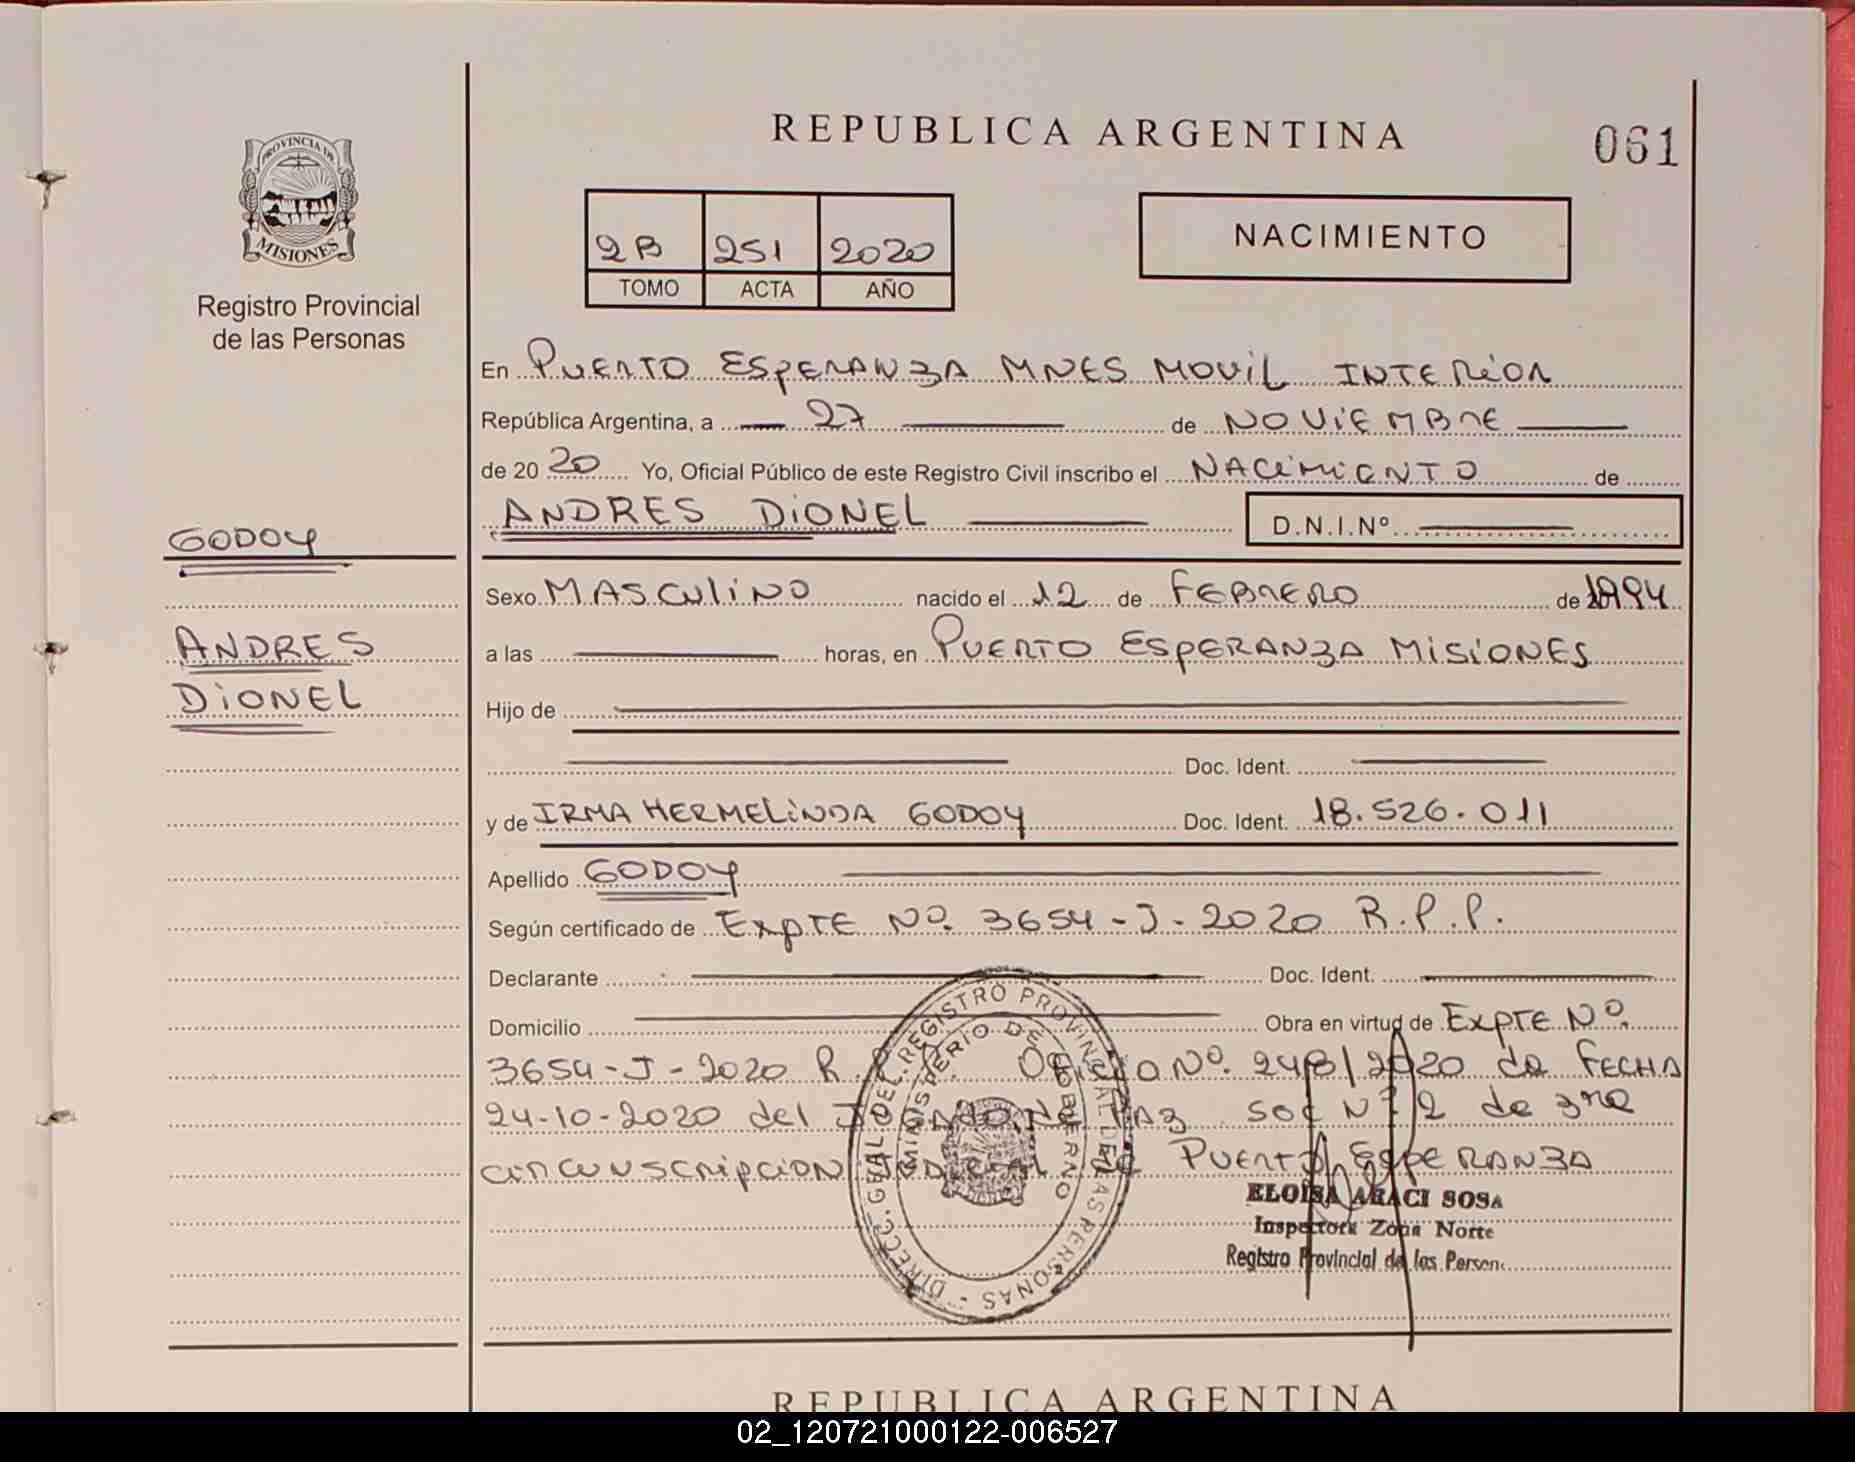 REPUBLICA ARGENTINA
061
PROVINCIA DE
MISIONES
Registro Provincial
de las Personas
2B 251 2020
TOMO ACTA AÑO
NACIMIENTO
En PUERTO ESPERANZA MNES MOVIL INTERIOR
República Argentina, a 27 de NOVIEMBRE
de 20 20 Yo, Oficial Público de este Registro Civil inscribo el NACIMIENTO de
ANDRES DIONEL D.N.I.Nº
GODOY
ANDRES
DIONEL
Sexo MASCULINO nacido el 12 de FEBRERO de 1994
a las horas, en PUERTO ESPERANZA MISIONES
Hijo de
Doc. Ident.
y de IRMA HERMELINDA GODOY Doc. Ident. 18.526.011
Apellido GODOY
Según certificado de EXPTE Nº 3654-J-2020 R.P.P.
Declarante Doc. Ident.
Domicilio Obra en virtud de EXPTE Nº
3654-J-2020 R. OFICIO Nº 248/2020 de FECHA
24-10-2020 del de PAZ Nº 2 de 3ra
CIRCUNSCRIPCION JUDICIAL DE PUERTO ESPERANZA
DIRECC. GRAL DEL REGISTRO PROVINCIAL DE LAS PERSONAS
MINISPERIO DE GOBIERNO
ELOISA ARACI SOSA
Inspectora Zona Norte
Registro Provincial de las Person
REPUBLICA ARGENTINA
02_120721000122-006527